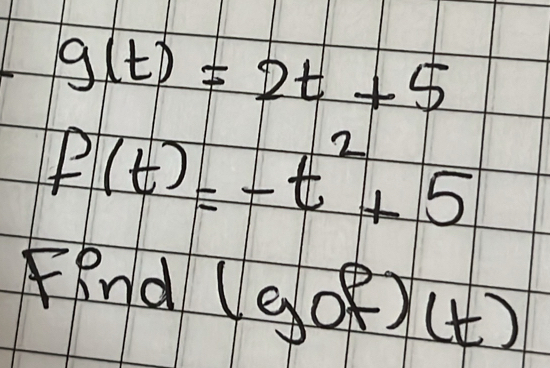 g(t) = 2t + 5
f(t) = -t² + 5
Find (gof)(t)